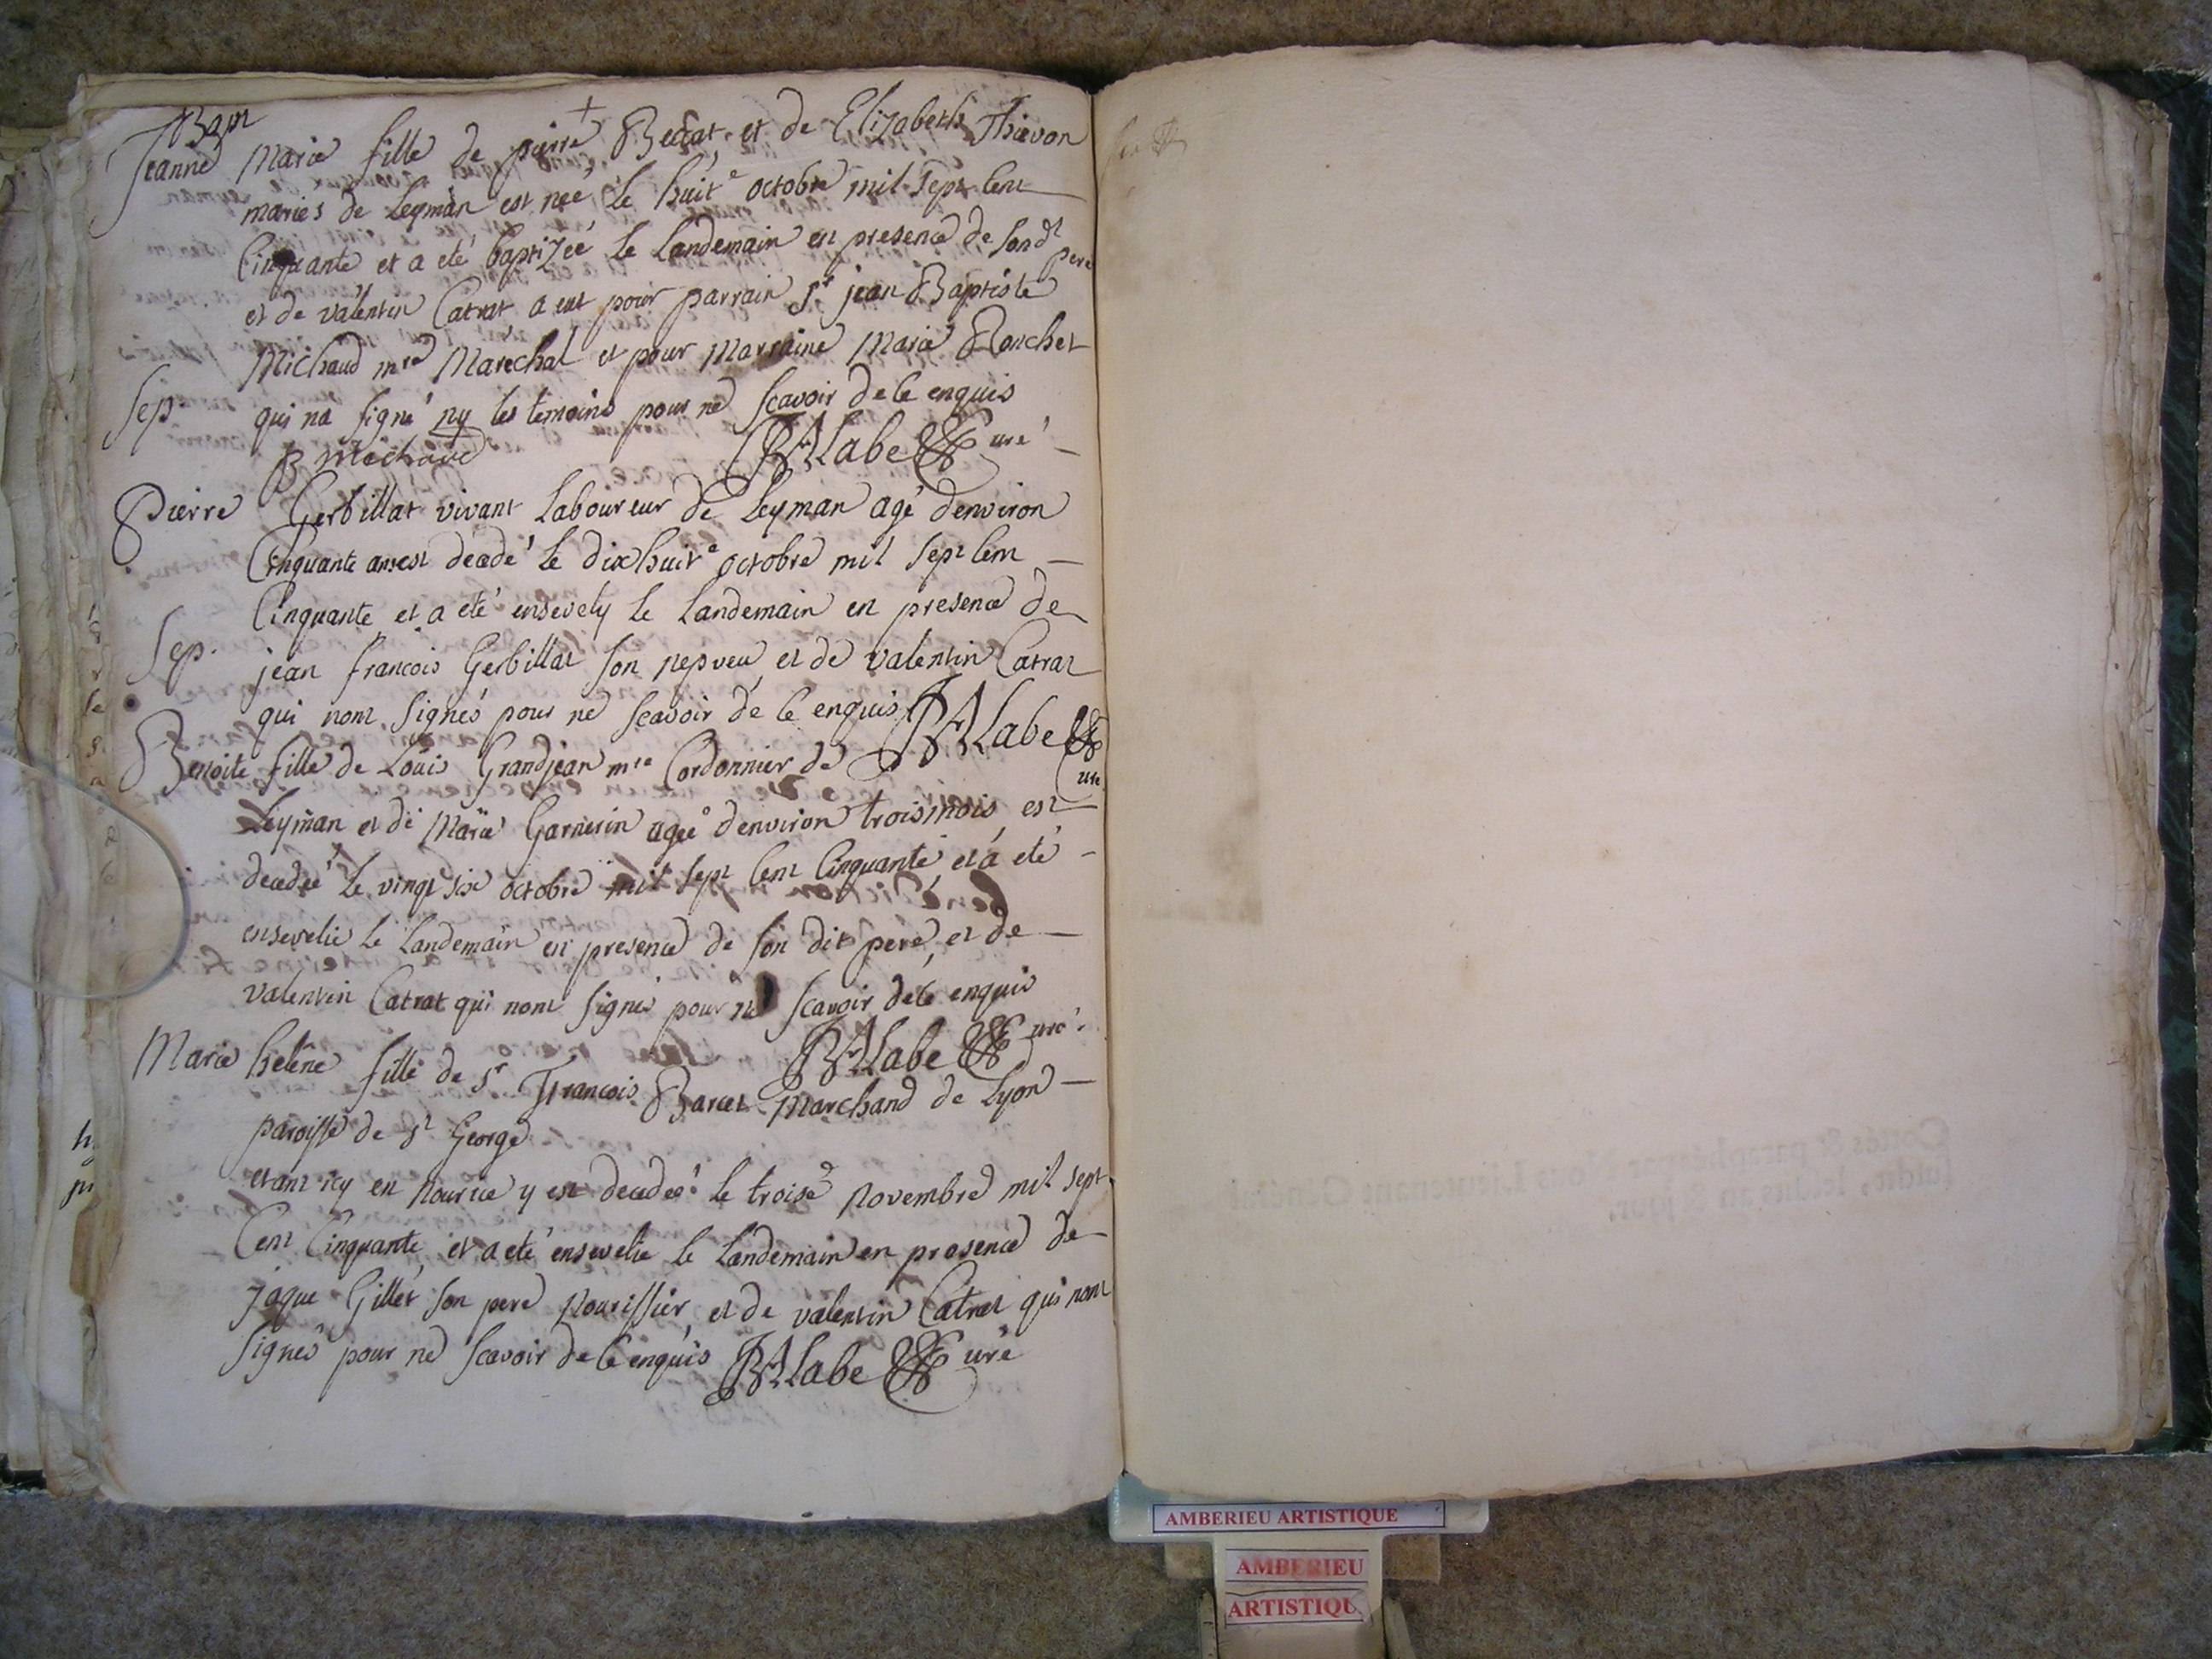 Bapt
Jeanne Marie fille de pierre Beccat, et de Elizabeth Thievon
mariés de Leyman est neé le huit.e octobre mil sept Cent
Cinquante et a eté baptizéé le Landemain en presence de son dt pere
et de valentin Catrat a eut pour parrain Sr jean Baptiste
Michaud mre Marechal et pour Marraine Marie Bouchet
Sep. qui na signé ny les temoins pour ne scavoir de Ce enquis
B michaud Labe Curé
Pierre Gerbillat vivant Laboureur de Leyman agé denviron
Cinquante ans est decedé Le dix huit.e octobre mil sept Cent
Cinquante et a eté ensevely Le Landemain en presence de
Sep. jean francois Gerbillat son nepveu, et de valentin Catrat
qui nont signés pour ne scavoir de Ce enquis Labe Curé
Benoite fille de Louis Grandjean mre Cordonnier de
Leyman et de Marie Garnerin ageé denviron trois mois est
decedeé Le vingt six octobre mil sept Cent Cinquante, et á eté
ensevelie Le Landemain en presence de son dit pere, et de
valentin Catrat qui nont signés pour ne scavoir de Ce enquis
Labe Curé
Marie helêne fille de Sr Francois Barcet Marchand de Lyon
paroisse de St George
etant icy en nourice y est decedeé le trois.e novembre mil sept
Cent Cinquante, et a eté ensevelie Le Landemain en presence de
jaque Gillet son pere nourissier, et de valentin Catrat qui nont
signés pour ne scavoir de Ce enquis Labe Curé
AMBERIEU ARTISTIQUE
AMBERIEU
ARTISTIQU